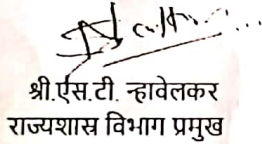 श्री.एस.टी. न्हावेलकर
राज्यशास्र विभाग प्रमुख